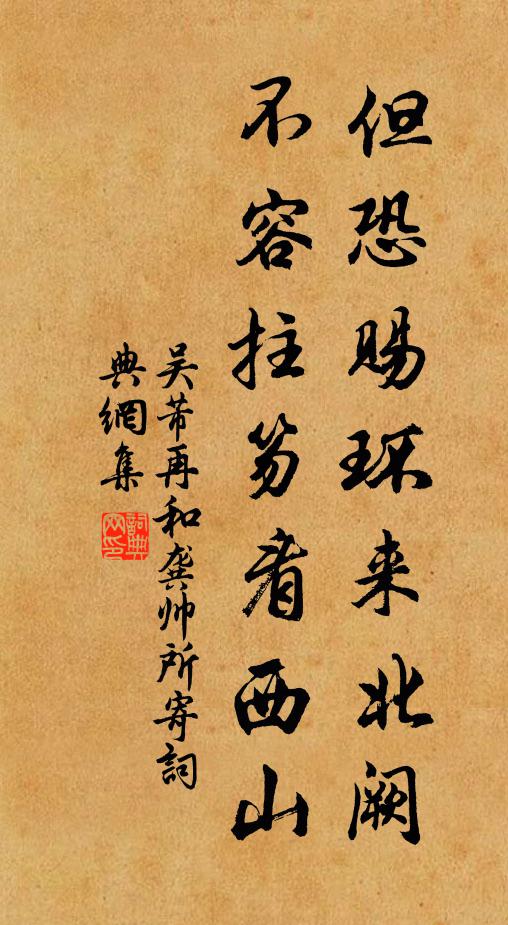 但恐赐环来北阙
不容拄笏看西山
吴芾再和龚帅所寄词
典網集
詞典網印